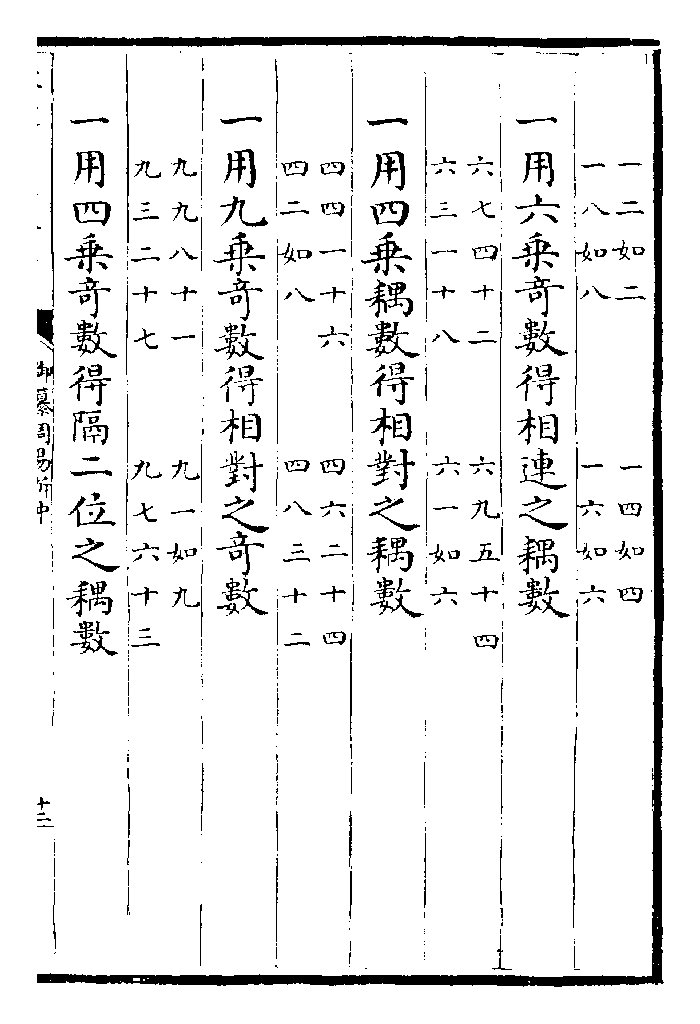 一二如二　一四如四
一八如八　一六如六
一用六乗奇數得相連之耦數
六七四十二　六九五十四
六三一十八　六一如六
一用四乗耦數得相對之耦數
四四一十六　四六二十四
四二如八　四八三十二
一用九乗奇數得相對之奇數
九九八十一　九一如九
九三二十七　九七六十三
一用四乗奇數得隔二位之耦數
御纂周易折中
十二